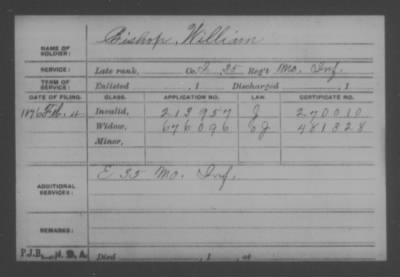 NAME OF SOLDIER: Bishop, William
SERVICE: Late rank, Co. I, 35 Reg't Mo. Inf.
TERM OF SERVICE: Enlisted , 1 Discharged , 1
DATE OF FILING. CLASS. APPLICATION NO. LAW. CERTIFICATE NO.
1876 Feb. 11 Invalid, 213957 J 270010
Widow, 676096 481328
Minor,
ADDITIONAL SERVICES: E 35 Mo. Inf.
REMARKS:
P.J.B. Died , 1 , at